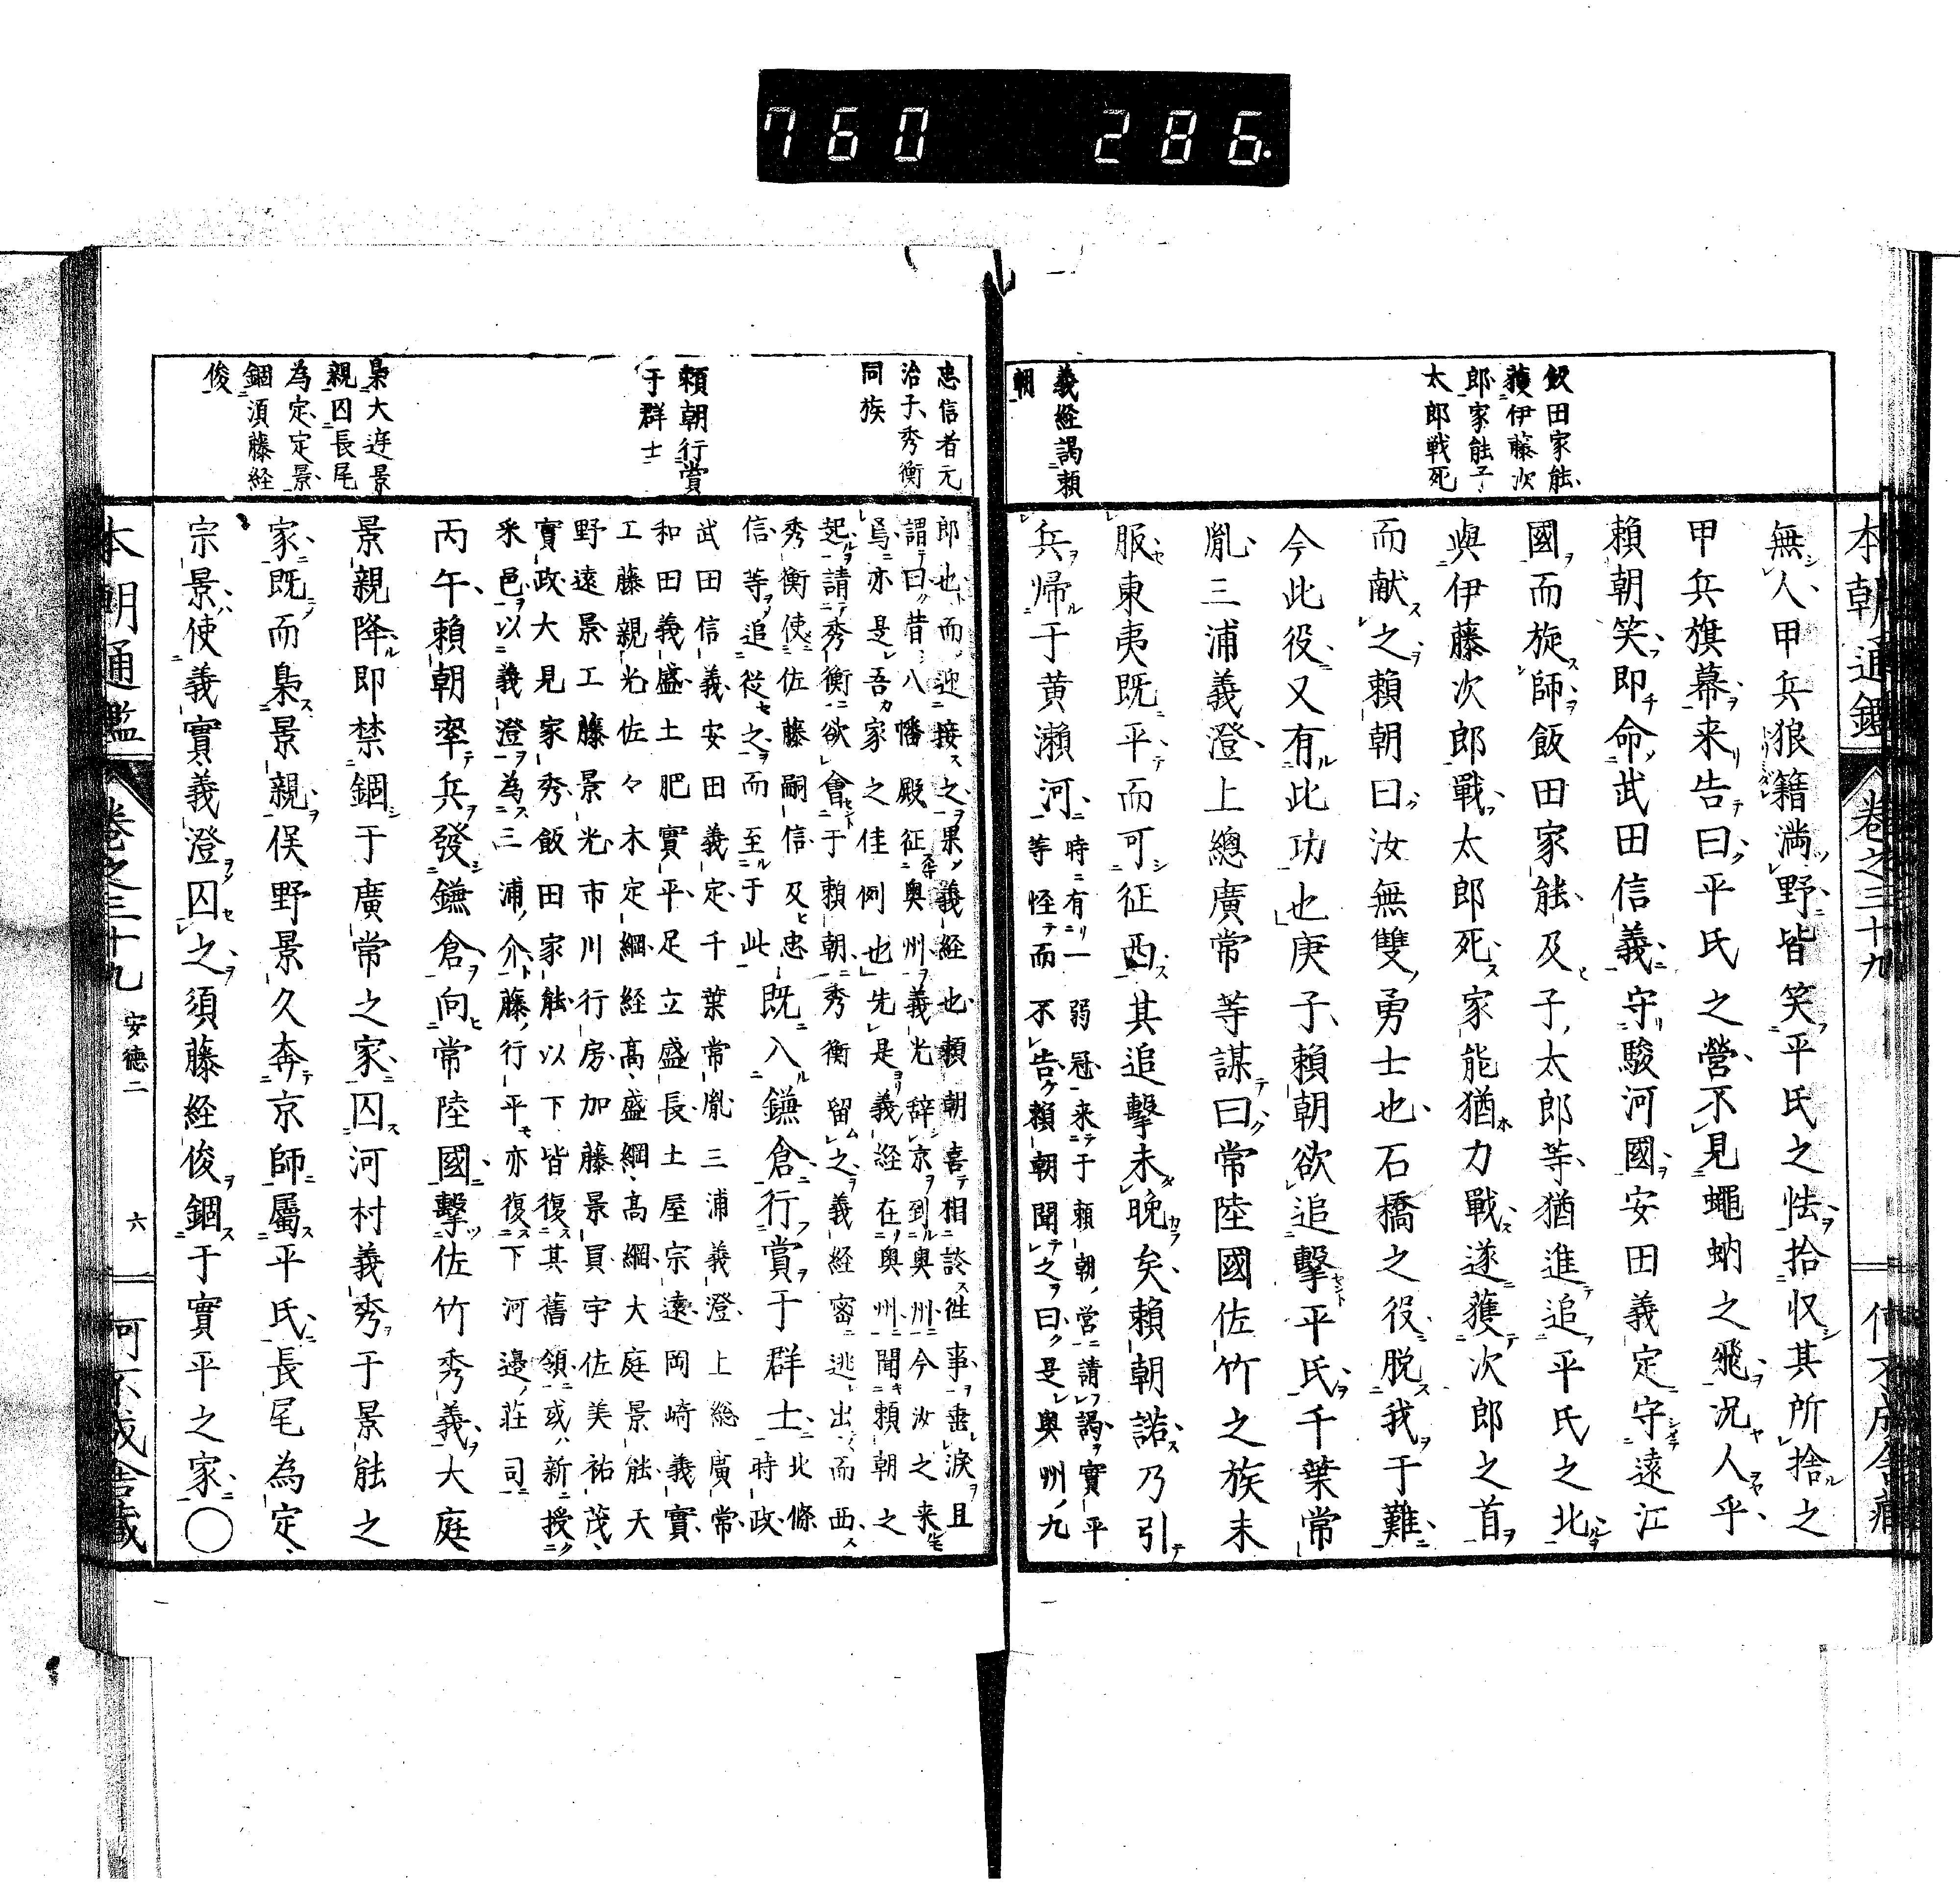 760 286.
本朝通鑑 卷之三十九
飯田家能
獲伊藤次
郎家能子
太郎戦死
義経謁頼
朝
無人甲兵狼籍満野皆笑平氏之怯拾収其所捨之
甲兵旗幕来告曰平氏之營不見蠅蚋之飛况人乎
頼朝笑即命武田信義守駿河國安田義定守遠江
國而旋師飯田家能及子太郎等猶進追平氏之北
與伊藤次郎戰太郎死家能猶力戰遂獲次郎之首
而献之頼朝曰汝無雙勇士也石橋之役脱我于難
今此役又有此功也庚子頼朝欲追擊平氏千葉常
胤三浦義澄上總廣常等謀曰常陸國佐竹之族未
服東夷既平而可征西其追擊未晚矣頼朝諾乃引
兵帰于黄瀬河
時有一弱冠来于頼朝營請謁實平
等恠而不告頼朝聞之曰是奥州九
忠信者元
治子秀衡
同族
頼朝行賞
于群士
梟大庭景
親囚長尾
為定定景
錮須藤経
俊
郎也而迎接之果義経也頼朝喜相談徃事垂涙且
謂曰昔八幡殿征奥州義光辞京到奥州今汝之来
焉亦是吾家之佳例也先是義経在奥州聞頼朝之
起請秀衡欲會于頼朝秀衡留之義経密逃出而西
秀衡使佐藤嗣信及忠
信等追從之而至于此
既入鎌倉行賞于群士
北條
時政
武田信義安田義定千葉常胤三浦義澄上総廣常
和田義盛土肥實平足立盛長土屋宗遠岡崎義實
工藤親光佐々木定綱経高盛綱高綱大庭景能天
野遠景工藤景光市川行房加藤景員宇佐美祐茂
實政大見家秀飯田家能以下皆復其舊領或新授
釆邑以義澄為三浦介藤行平亦復下河邊荘司
丙午頼朝率兵發鎌倉向常陸國擊佐竹秀義大庭
景親降即禁錮于廣常之家囚河村義秀于景能之
家既而梟景親俣野景久奔京師屬平氏長尾為定
宗景使義實義澄囚之須藤経俊錮于實平之家〇
本朝通鑑 卷之三十九 安徳二 六